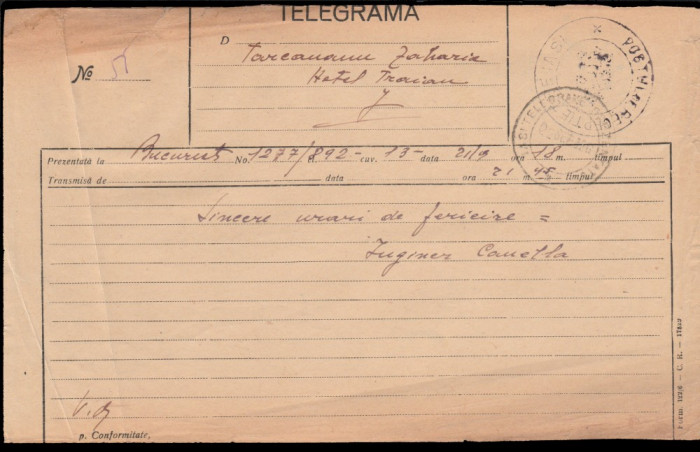 TELEGRAMA
D Tarcananu Zaharia
No
Hotel Traian
Prezentată la București No. 1277/892- cuv. 13- data 21/9 ora 18 m. timpul
Transmisă de data ora 21 m. 45 timpul
Sincere urari de fericire =
Inginer Canella
p. Conformitate,
C. R. — 17809